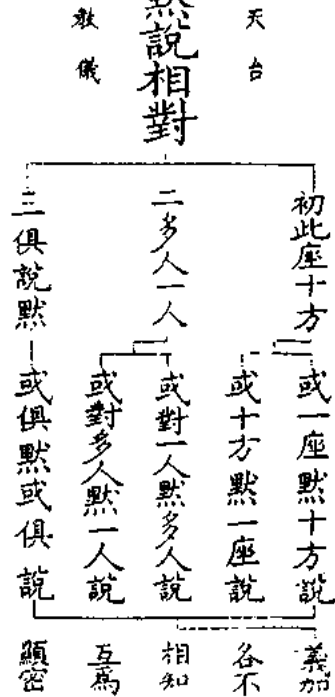 天台
默說相對
教儀
初此座十方
或一座默十方說
或十方默一座說
二多人一人
或對一人默多人說
或對多人默一人說
三俱說默
或俱默或俱說
義加
各不
相知
互爲
顯密